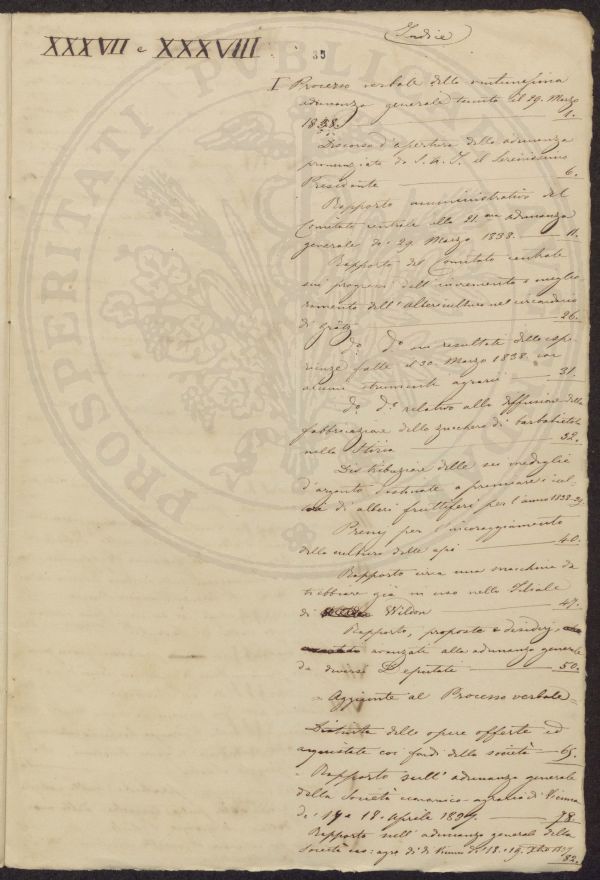 Indice
XXXVII e XXXVIII
35
I Processo verbale della ventunesima
adunanza generale tenuta il 29. Marzo
1838. 1.
Discorso d'apertura della adunanza
pronunziato da S. A. I. il Serenissimo
Presidente 6.
Rapporto amministrativo del
Comitato centrale alla 21.ma adunanza
generale de' 29. Marzo 1838. 11.
Rapporto del Comitato centrale
sui progressi dell'incremento e miglio
ramento dell' nel circondario
di Grätz 26.
do. do. sui resultati delle espe-
rienze fatte il 30. Marzo 1838 con
alcuni strumenti agrarii 31.
do. do. relativo alla diffusione della
fabbricazione dello zucchero di barbabietola
nella Stiria 32.
Distribuzione delle sei medaglie
d'argento destinate a premiare i cul-
di alberi fruttiferi per l'anno 1838. 39.
Premj per l'incoraggiamento
della cultura delle api 40.
Rapporto circa una macchina da
trebbiare già in uso nella Filiale
di Wildon 47.
Rapporto, proposte e desiderj,
avanzati alla adunanza generale
da diversi Deputati 50.
= Aggiunte al Processo verbale =
Distinta delle opere offerte ed
acquistate coi fondi della società 65.
Rapporto sull'adunanza generale
della Società economico-agraria di Vienna
de' 17 e 18. Aprile 1837. 78.
Rapporto sull'adunanza general della
società eco: agra di di Vienna di 18. e 19. Xbre 1837
82.
PROSPERITATI PUBLICAE